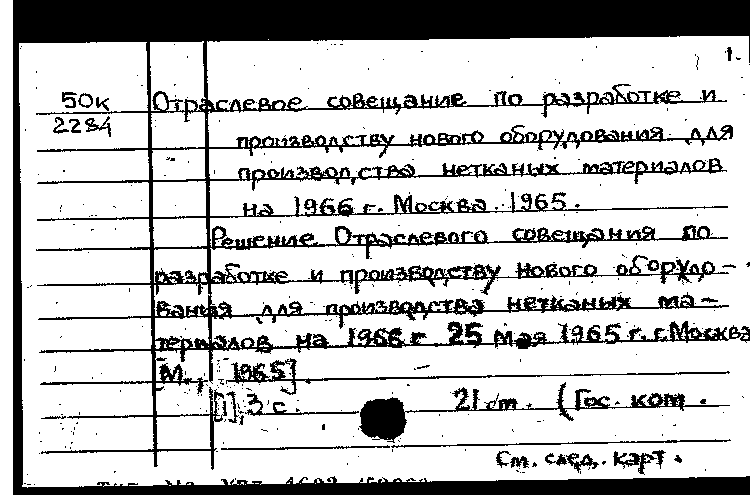 1.
50к
2284
Отраслевое совещание по разработке и
производству нового оборудования для
производства нетканых материалов
на 1966 г. Москва. 1965.
Решение Отраслевого совещания по
разработке и производству нового оборудо-
вания для производства нетканых ма-
териалов на 1966 г. 25 мая 1965 г. г. Москва
[М., 1965].
[1], 3 с. 21 см. (Гос. ком.
См. след. карт.